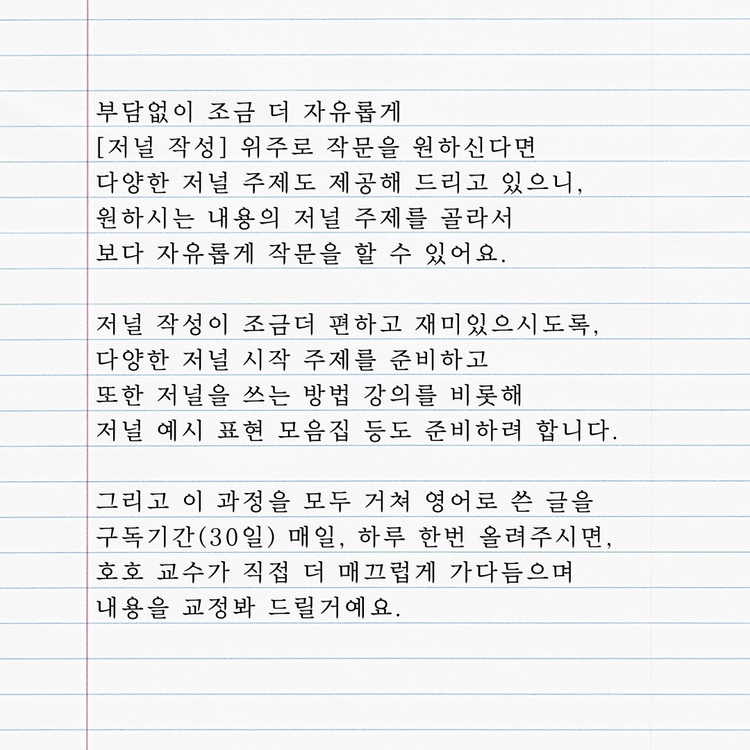 부담없이 조금 더 자유롭게
[저널 작성] 위주로 작문을 원하신다면
다양한 저널 주제도 제공해 드리고 있으니,
원하시는 내용의 저널 주제를 골라서
보다 자유롭게 작문을 할 수 있어요.
저널 작성이 조금더 편하고 재미있으시도록,
다양한 저널 시작 주제를 준비하고
또한 저널을 쓰는 방법 강의를 비롯해
저널 예시 표현 모음집 등도 준비하려 합니다.
그리고 이 과정을 모두 거쳐 영어로 쓴 글을
구독기간(30일) 매일, 하루 한번 올려주시면,
호호 교수가 직접 더 매끄럽게 가다듬으며
내용을 교정봐 드릴거예요.